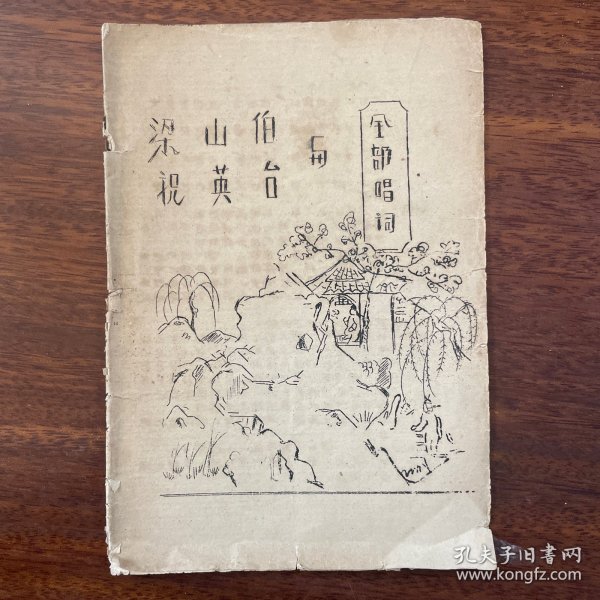 梁山伯与
祝英台
全部唱词
孔夫子旧书网
www.kongfz.com